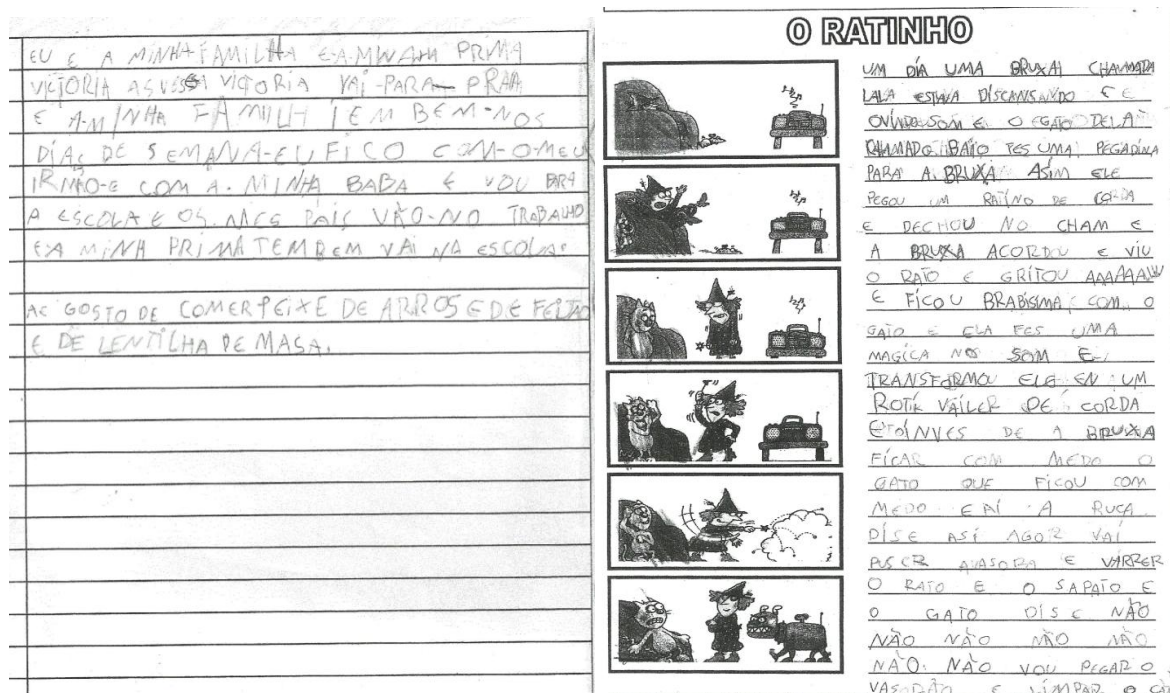 EU E A MINHA FAMILHA E-A-MINHA PRIMA
VICTORIA AS VESSA VICTORIA VAI-PARA PRAIA
E A-MINHA FAMILH TEM BEM-NOS
DIAS DE SEMANA-EU FICO COM-O-MEU
IRMÃO-E COM A. MINHA BABA E VOU PARA
A ESCOLA E OS. PAIS VÃO-NO TRABALHO
E A MINH PRIMA TEMBEM VAI NA ESCOLA.
GOSTO DE COMER PEIXE DE ARROS E DE FEIJÃO
E DE LENTILHA DE MASA.
O RATINHO
UM DIA UMA BRUXA CHAMADA
LALA ESTAVA DISCANSANDO E
OVINDO SOM E O GATO DELA
CHAMADO FES UMA PEGADINA
PARA A BRUXA ASIM ELE
PEGOU UM RATINO DE CORDA
E DECHOU NO CHAM E
A BRUXA ACORDOU E VIU
O RATO E GRITOU AAAAAAAA
E FICOU BRABISIMA COM O
GATO E ELA FES UMA
MAGICA NO SOM E
TRANSFORMOU ELE EN UM
ROTIK VAILER DE CORDA
DE A BRUXA
FICAR COM MEDO O
GATO QUE FICOU COM
MEDO E AI A RUCA
DISE ASI AGOR VAI
E VARRER
O RATO E O SAPATO E
O GATO DISE NÃO
NÃO NÃO NÃO NÃO
NÃO. NÃO VOU PEGAR O
E LIMPAR O